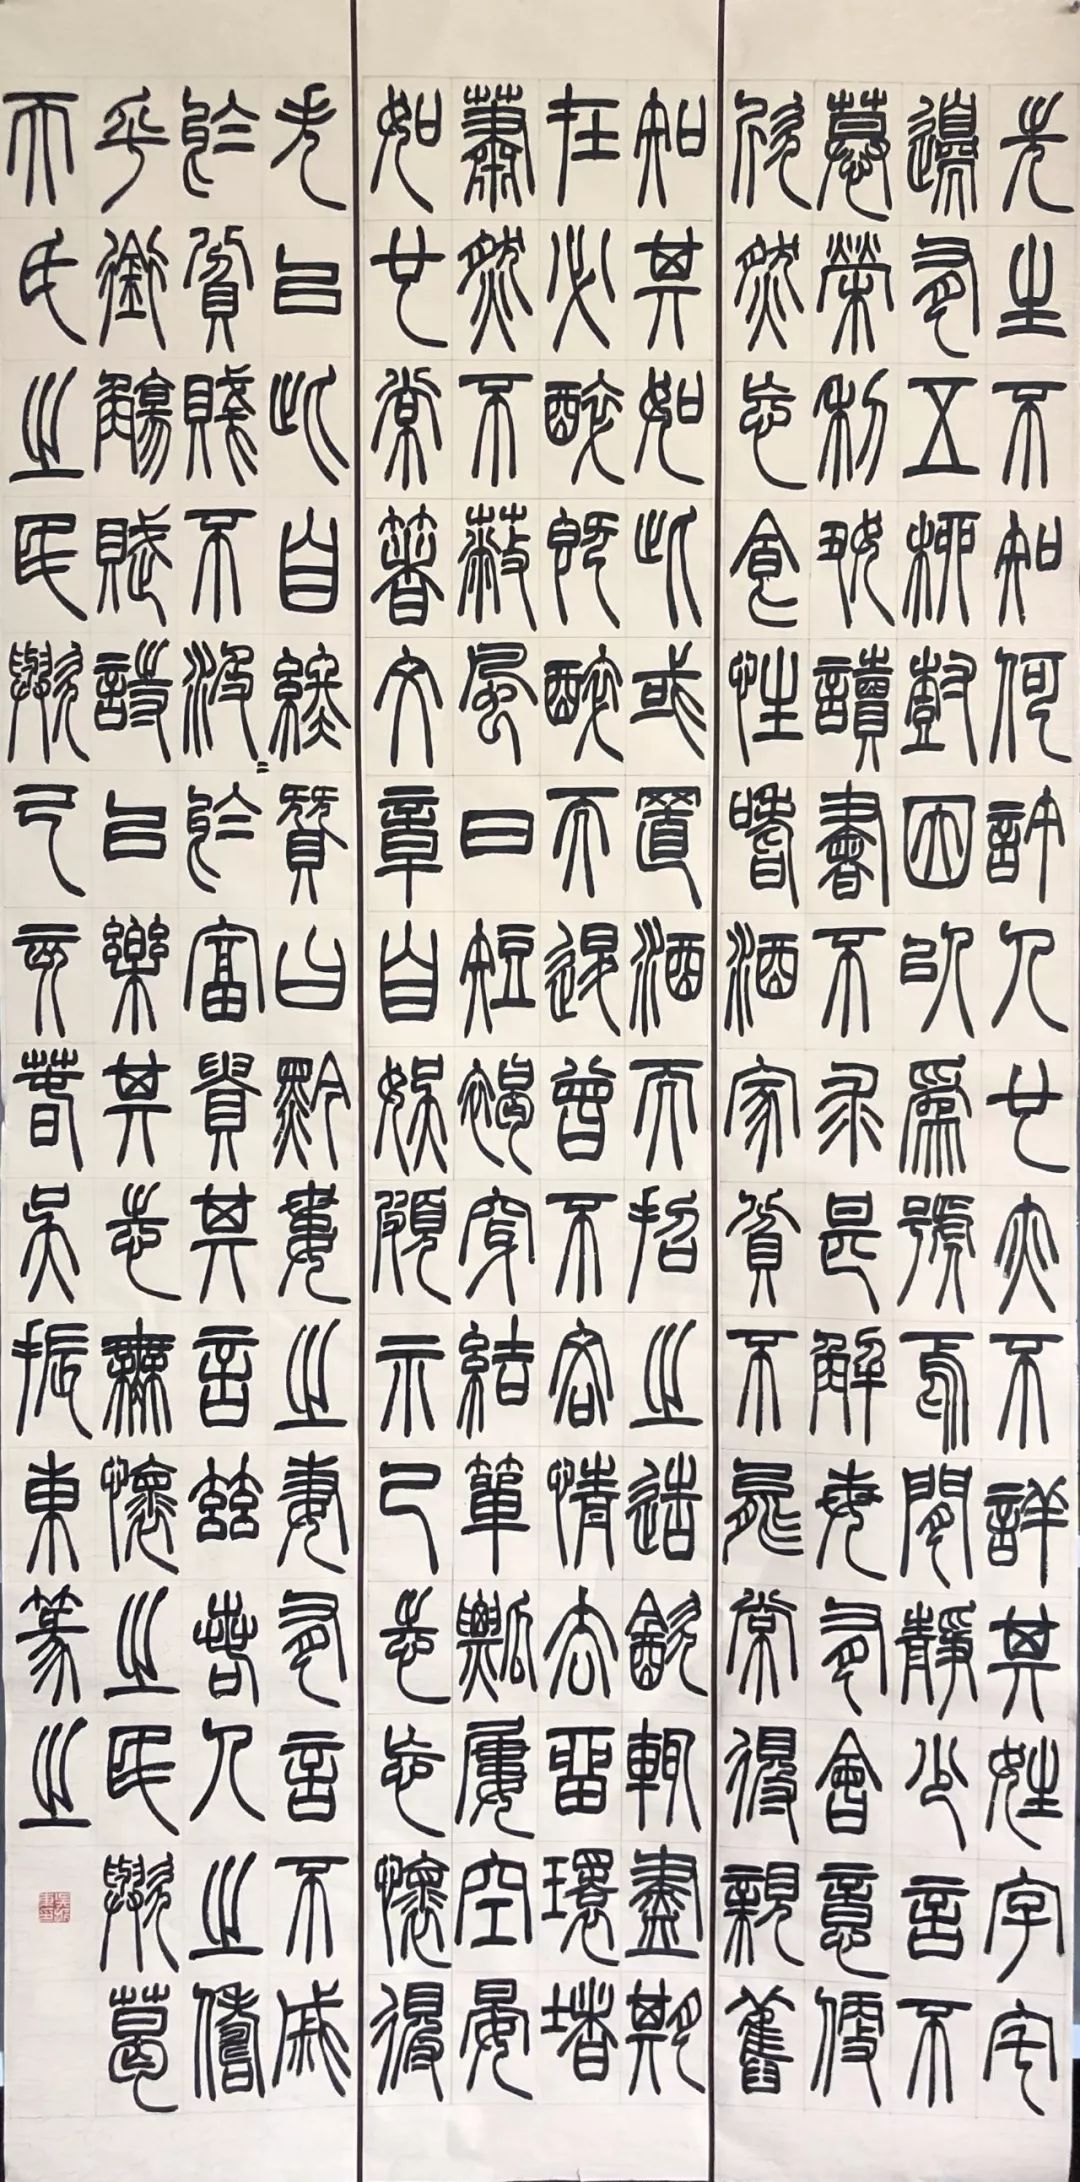 先生不知何許人也亦不詳其姓字宅
邊有五柳樹因以爲號焉閒靜少言不
慕榮利好讀書不求甚解每有會意便
欣然忘食性嗜酒家貧不能常得親舊
知其如此或置酒而招之造飲輒盡期
在必醉既醉而退曾不吝情去留環堵
蕭然不蔽風日短褐穿結簞瓢屢空晏
如也常著文章自娛頗示己志忘懷得
失以此自終贊曰黔婁之妻有言不戚
於貧賤不汲=於富貴其言茲若人之儔
乎銜觴賦詩以樂其志無懷之民歟葛
天氏之民歟己亥春吳振東篆之